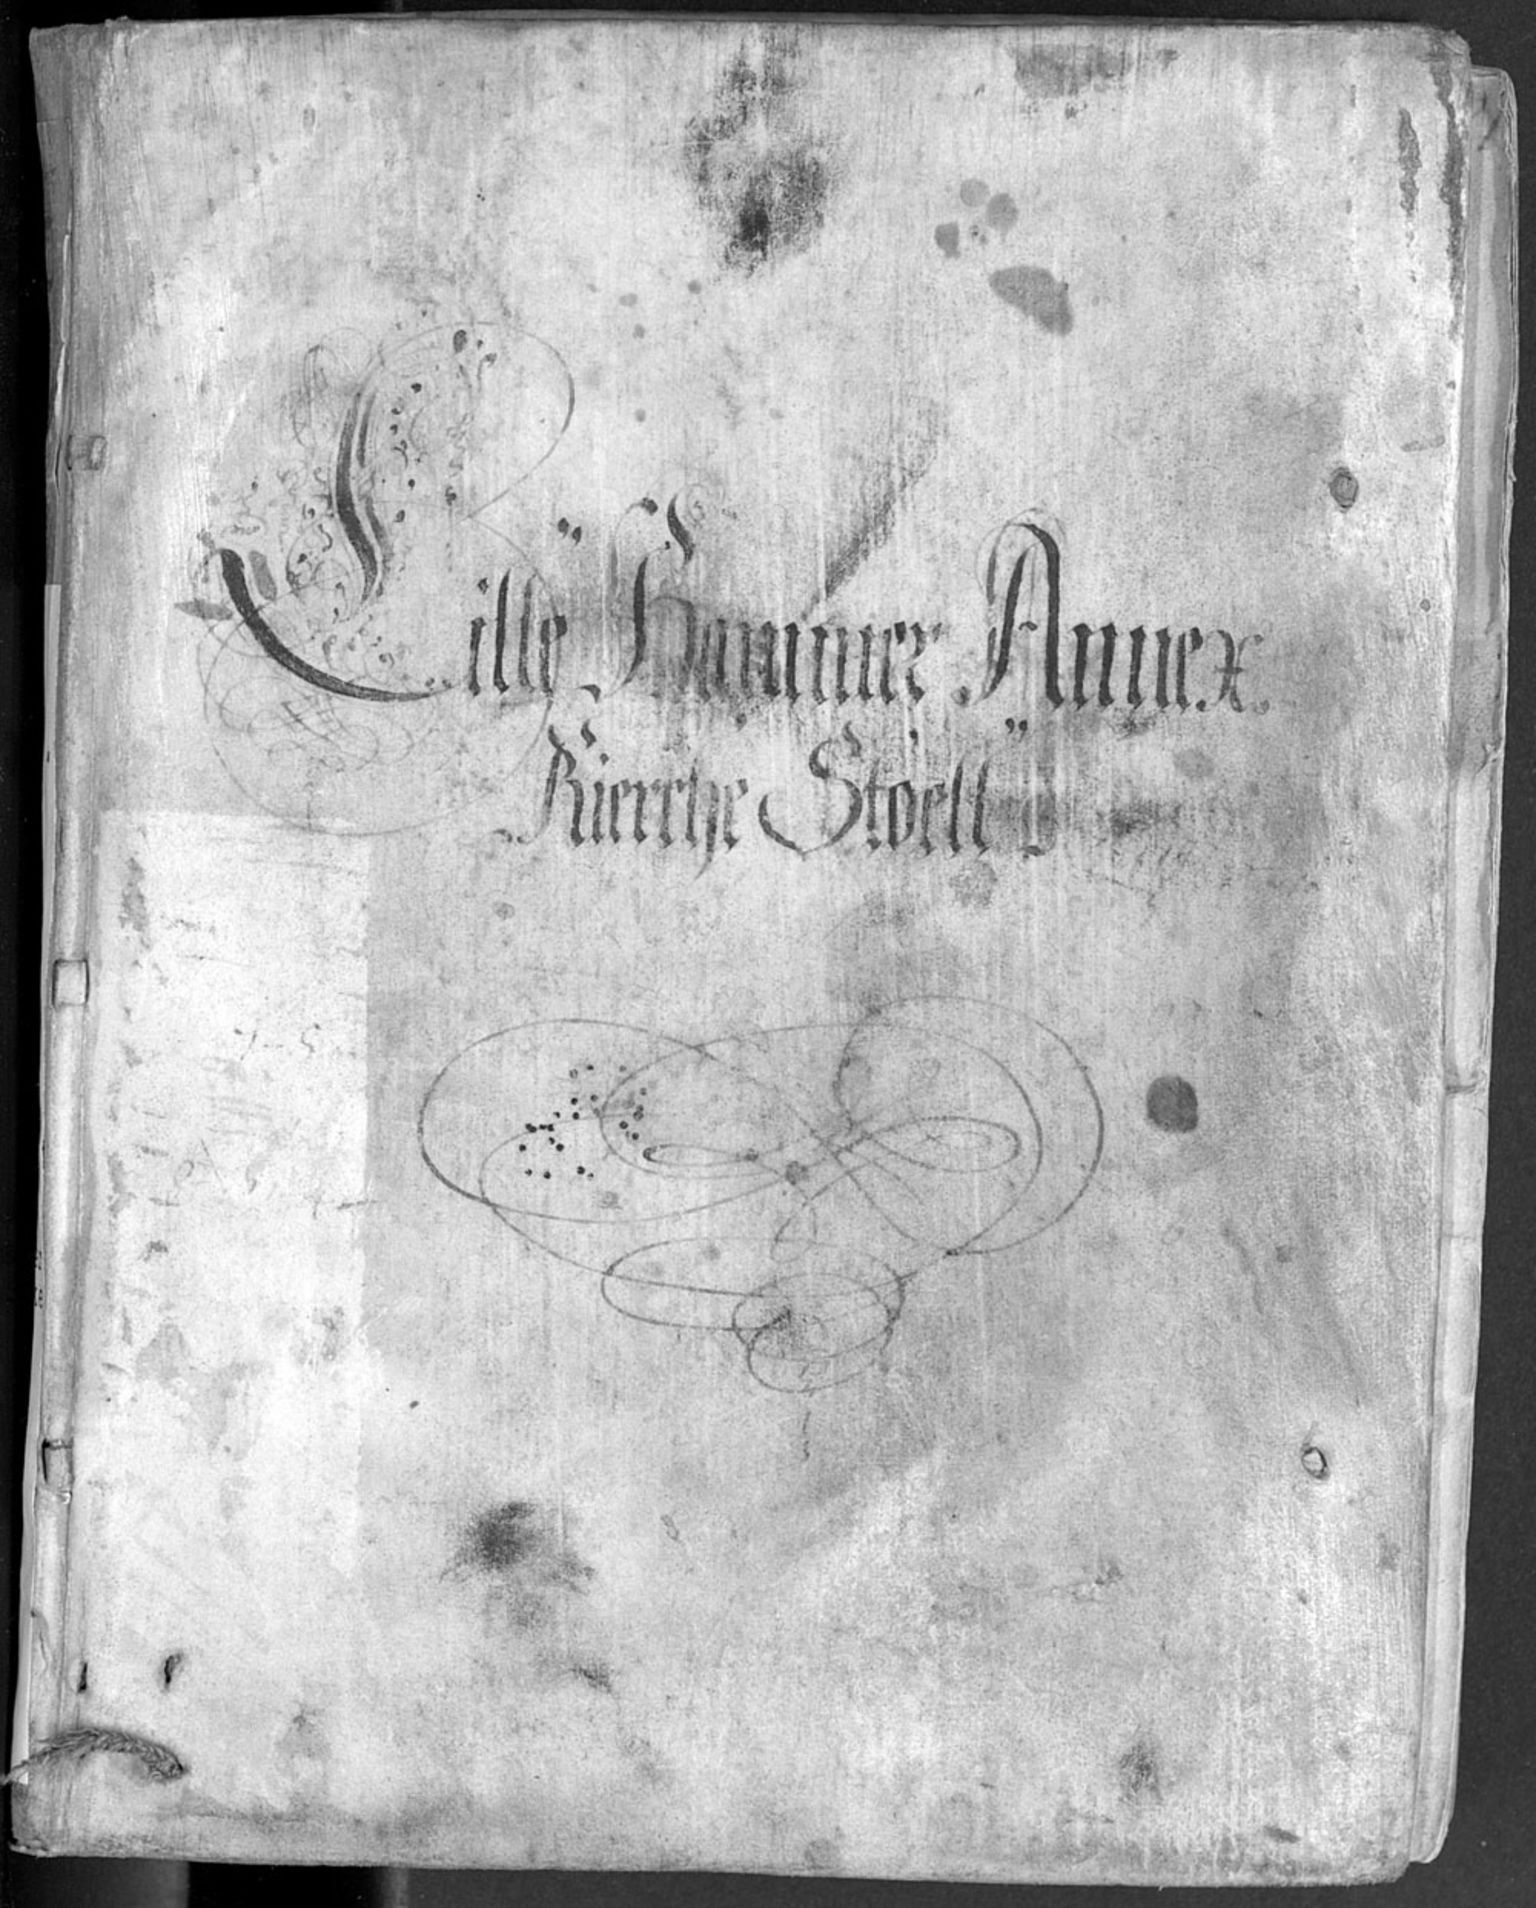 Lille Hammer Annex
Kierche Stoell